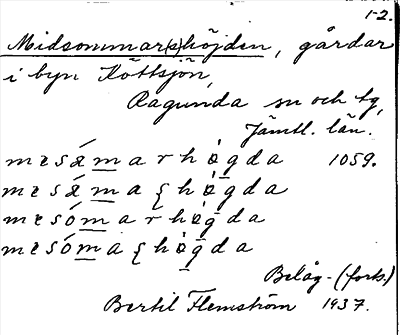 1-2.
Midsommar(s)höjden, gårdar
i byn Köttsjön,
Ragunda sn och tg,
Jämtl. län.
mesámarhögda 1059.
mesámaʂhögda
mesómarhögda
mesómaʂhögda
Beläg-(forts.)
Bertil Flemström 1937.